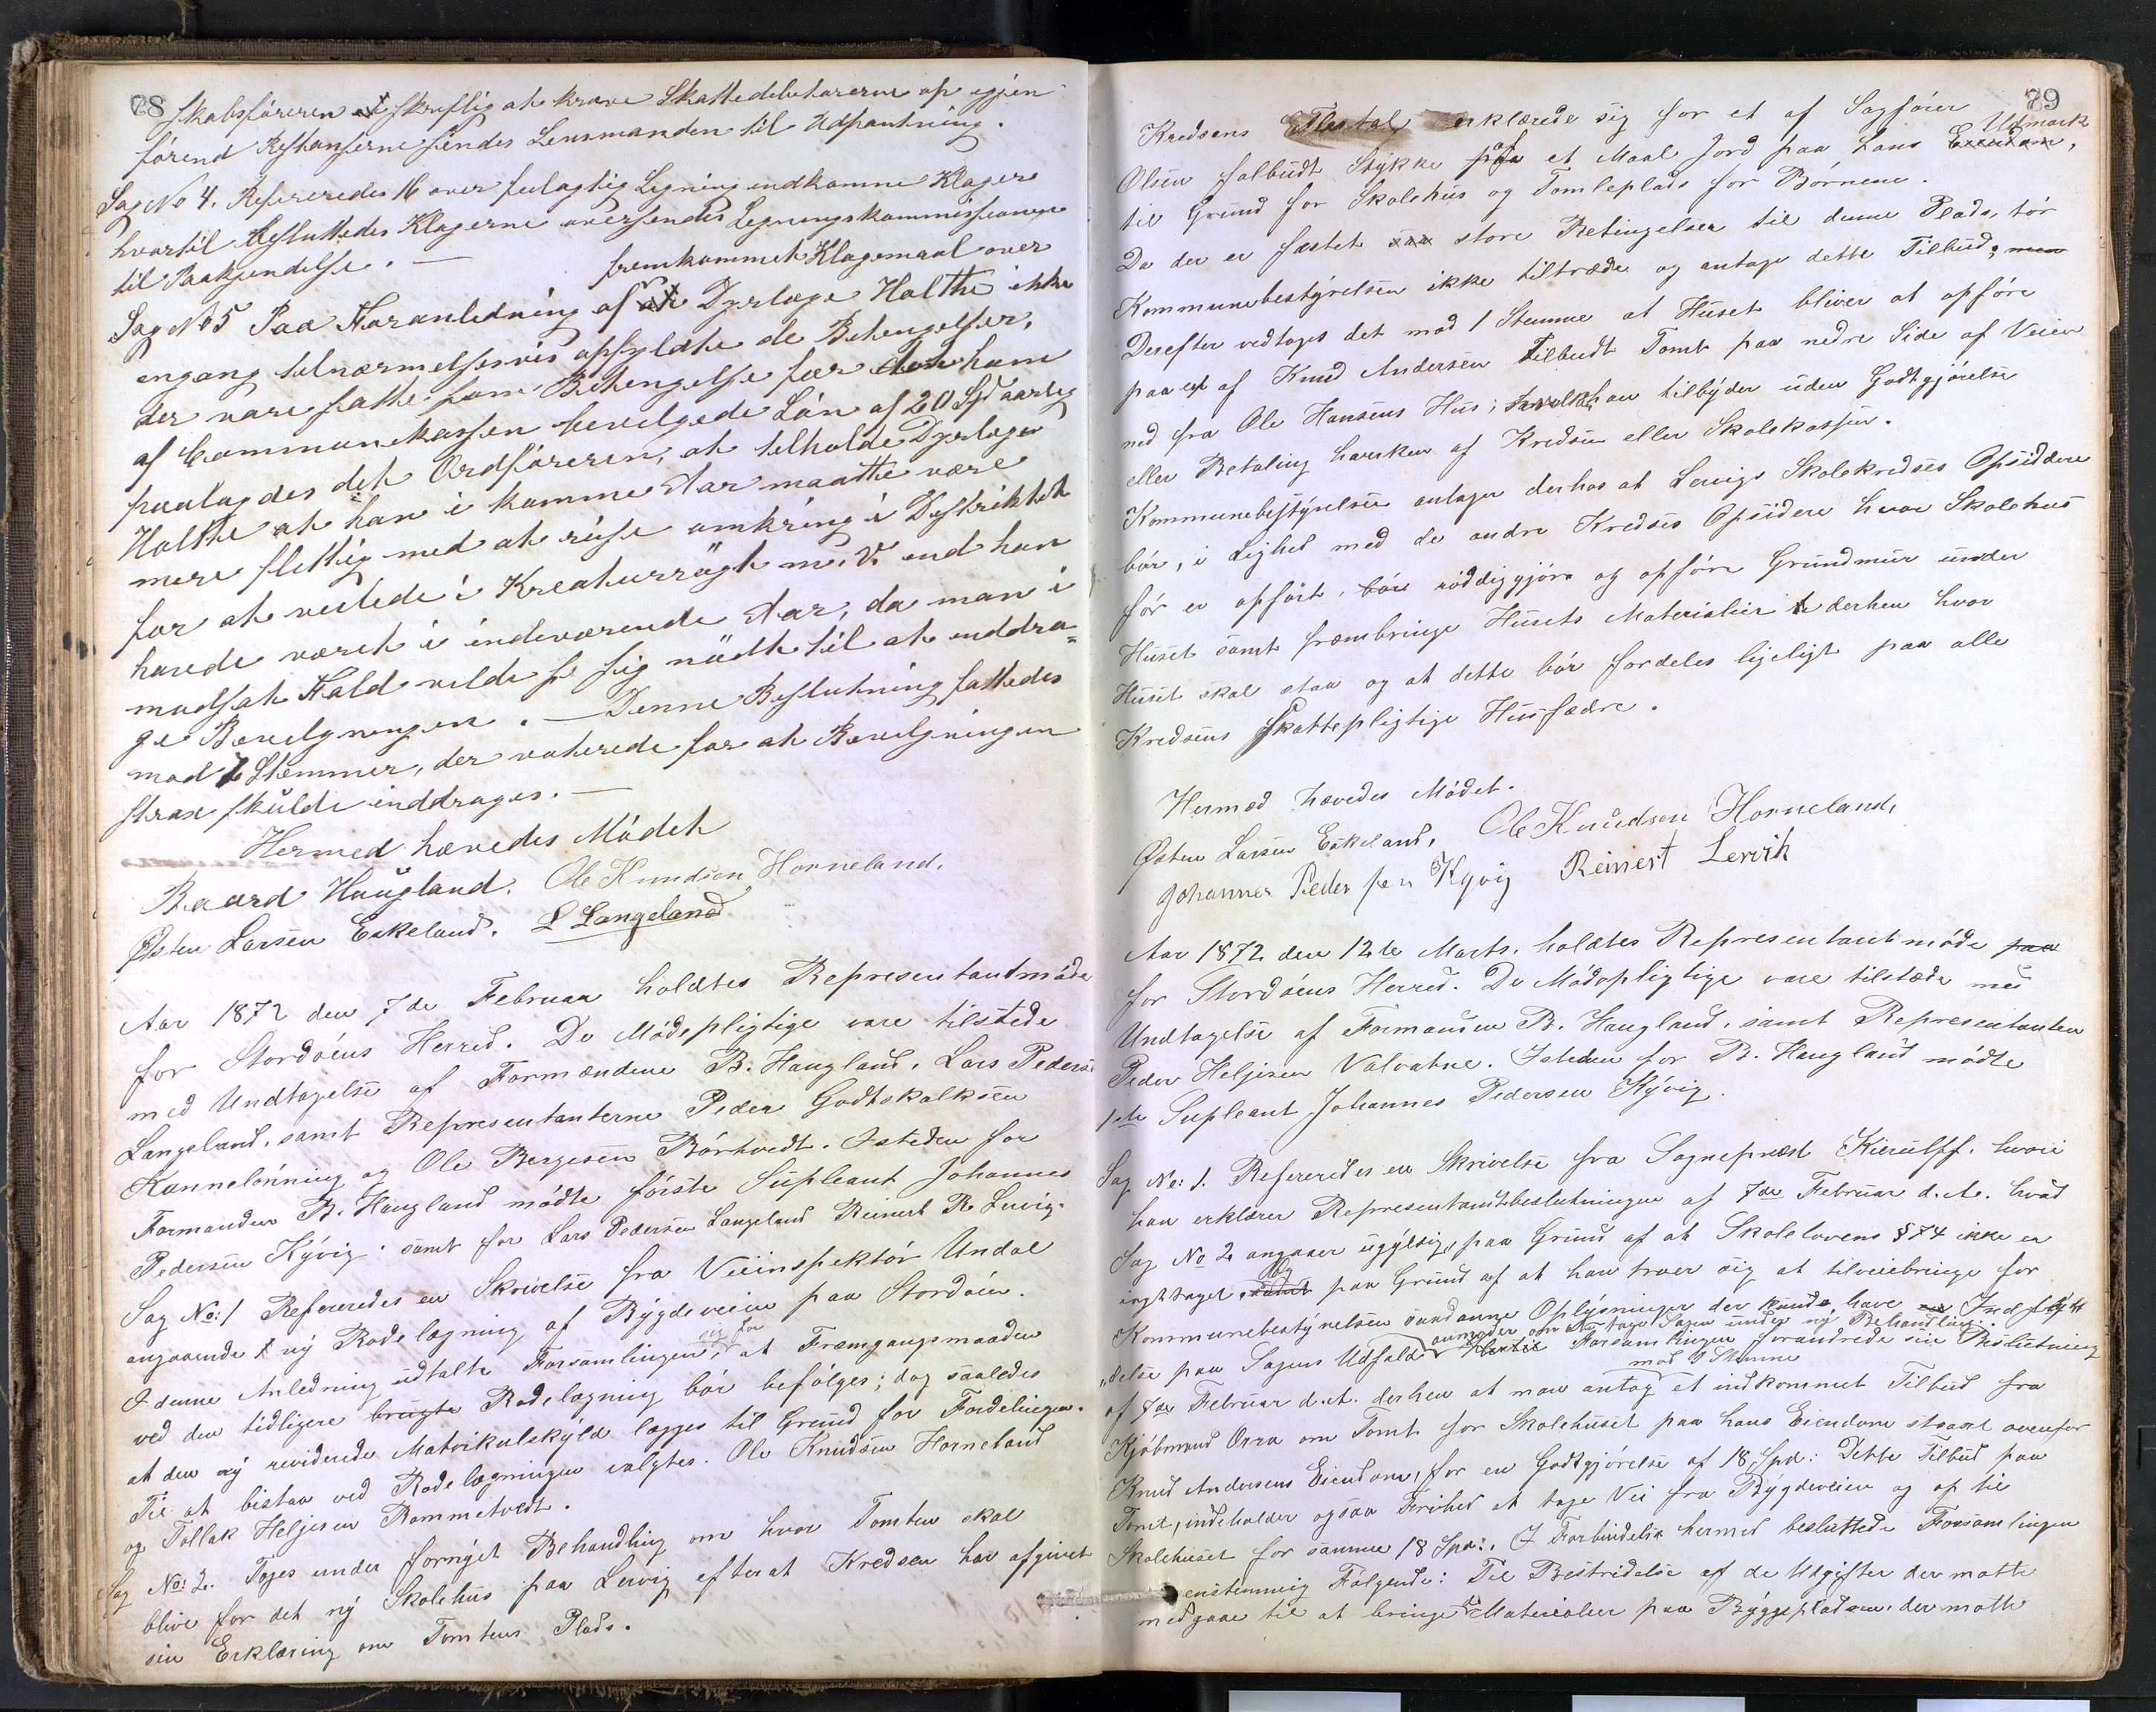 78
skabsføreren at skriftlig at kræve Skattedebitorerne op igjen
førend Restanserne sendes Lensmanden til Udpantning.
Sag No 4. Refereredes 16 over feilagtig Ligning indkomne Klager
hvortil Besluttedes Klagerne oversendes Ligningskommissionen
til Paakjendelse. —
fremkommet Klagemaal over
Sag No 5 Paa Foranledning af at Dyrlæge Holthe ikke
engang tilnærmelsesvis opfyldte de Betingelser,
der vare satte som Betingelse for den ham
af Communekassen bevilgede Løn af 20 Spd aarlig
paalagdes det Ordføreren, at tilholde Dyrlæge
Holthe at han i komme Aar maatte være
mere flittig med at reise omkring i Distriktet
for at veilede i Kreaturrøgt m. V. end han
havde været i indeværende Aar, da man i
modsat Fald vilde se sig nødt til at inddra-
ge Bevilgningen. — Denne Beslutning fattedes
mod 7 Stemmer, der voterede for at Bevilgningen
strax skulde inddrages. —
Hermed hævedes Mødet
Baard Haugland. Ole Knudsen Horneland.
Østen Larsen Eskeland. L Langeland
Aar 1872 den 7de Februar holdtes Representantmøde
for Stordøens Herred. De Mødepligtige vare tilstede
med Undtagelse af Formændene B. Haugland, Lars Peders.
Langeland, samt Representanterne Peder Godtskalksen
Kannelønning og Ole Bergesen Børtvedt. Isteden for
Formanden B. Haugland mødte første Supleant Johannes
Pedersen Kyvig; samt for Lars Pedersen Langeland Reinert R. Lervig.
Sag No: 1 Refereredes en Skrivelse fra Veiinspektør Undal
angaaende ny Rodelægning af Bygdeveien paa Stordøen.
I denne Anledning udtalte Forsamlingen sig for at Fremgangsmaaden
ved den tidligere brugte Rodelægning bør befølges; dog saaledes
at den ny reviderede Matrikulskyld lægges til Grund for Fordelingen.
Til at bistaa ved Rodelægningen valgtes. Ole Knudsen Horneland
og Tollak Heljesen Rommetvedt.
Sag No: 2. Toges under fornyet Behandling om hvor Tomten skal
blive for det ny Skolehus paa Lervig efterat Kredsen har afgivet
sin Erklæring om Tomtens Plads.
79
Kredsens Flertal erklærede sig for et af Sagfører
Olsen falbudt Stykke paa et Maal Jord paa hans Eiendom, Udmark
til Grund for Skolehus og Tomleplads for Børnene.
Da der er fæstet saa store Betingelser til denne Plads, tør
Kommunebestyrelsen ikke tiltræde og antage dette Tilbud; men
Derefter vedtoges det mod 1 Stemme at Huset bliver at opføre
paa et af Knud Andersen tilbudt Tomt paa nedre Side af Veien
ned fra Ole Hansens Hus; hvilket han tilbyder uden Godtgjørelse
eller Betaling hverken af Kredsen eller Skolekassen.
Kommunebestyrelsen antager derhos at Lervigs Skolekredses Opsiddere
bør, i Lighed med de andre Kredses Opsidere hvor Skolehus
før er opført, bør røddiggjøre og opføre Grundmur under
Huset samt frembringe Husets Materialier derhen hvor
Huset skal staa og at dette bør fordeles ligeligt paa alle
Kredsens Skattepligtige Husfædre.
Hermed hævedes Mødet.
Østen Larsen Eskeland, Ole Knudsen Horneland,
Johannes Pedersen Kyvig Reinert Lervik
Aar 1872 den 12te Marts. holdtes Representantmøde paa
for Stordøens Herred. De Mødepligtige vare tilstede med
Undtagelse af Formanden B. Haugland, samt Representanten
Peder Heljesen Valvatne. Isteden for B. Haugland mødte
1ste Supleant Johannes Pedersen Kyvig.
Sag No: 1. Refereredes en Skrivelse fra Sognepræst Kierulff. hvori
han erklærer Representantbeslutningen af 7de Februar d. A. hvad
Sag No 2 angaaer ugyldig, paa Grund af at Skolelovens § 74 ikke er
iagttaget, samt og paa Grund af at han troer sig at tilveiebringe for
Kommunebestyrelsen saadanne Oplysninger der kunde have Indfly-
„delse paa Sagens Udfald anmoder om at tage Sagen under ny Behandling. Hertil Forsamlingen forandrede sin Beslutning
af 7de Februar d. A. derhen at man antog mod 9 Stemme et indkommet Tilbud fra
Kjøbmand Orra om Tomt for Skolehuset paa hans Eiendom straxt ovenfor
Knud Andersens Eiendom, for en Godtgjørelse af 18 Spd: Dette Tilbud paa
Tomt, indeholder ogsaa Frihed at tage Vei fra Bygdeveien og op til
Skolehuset for samme 18 Spd:. I Forbindelse hermed besluttede Forsamlingen
enstemmig Følgende: Til Bestridelse af de Udgifter der maatte
medgaae til at bringe Materialier paa Byggepladsen. der maatte